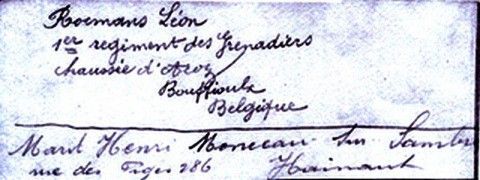 Roemans Léon
1er regiment des Grenadiers
chaussée d'Acoz
Bouffioulx
Belgique
Mart Henri Monceau Sur Sambre
rue des Piges 286 Hainaut